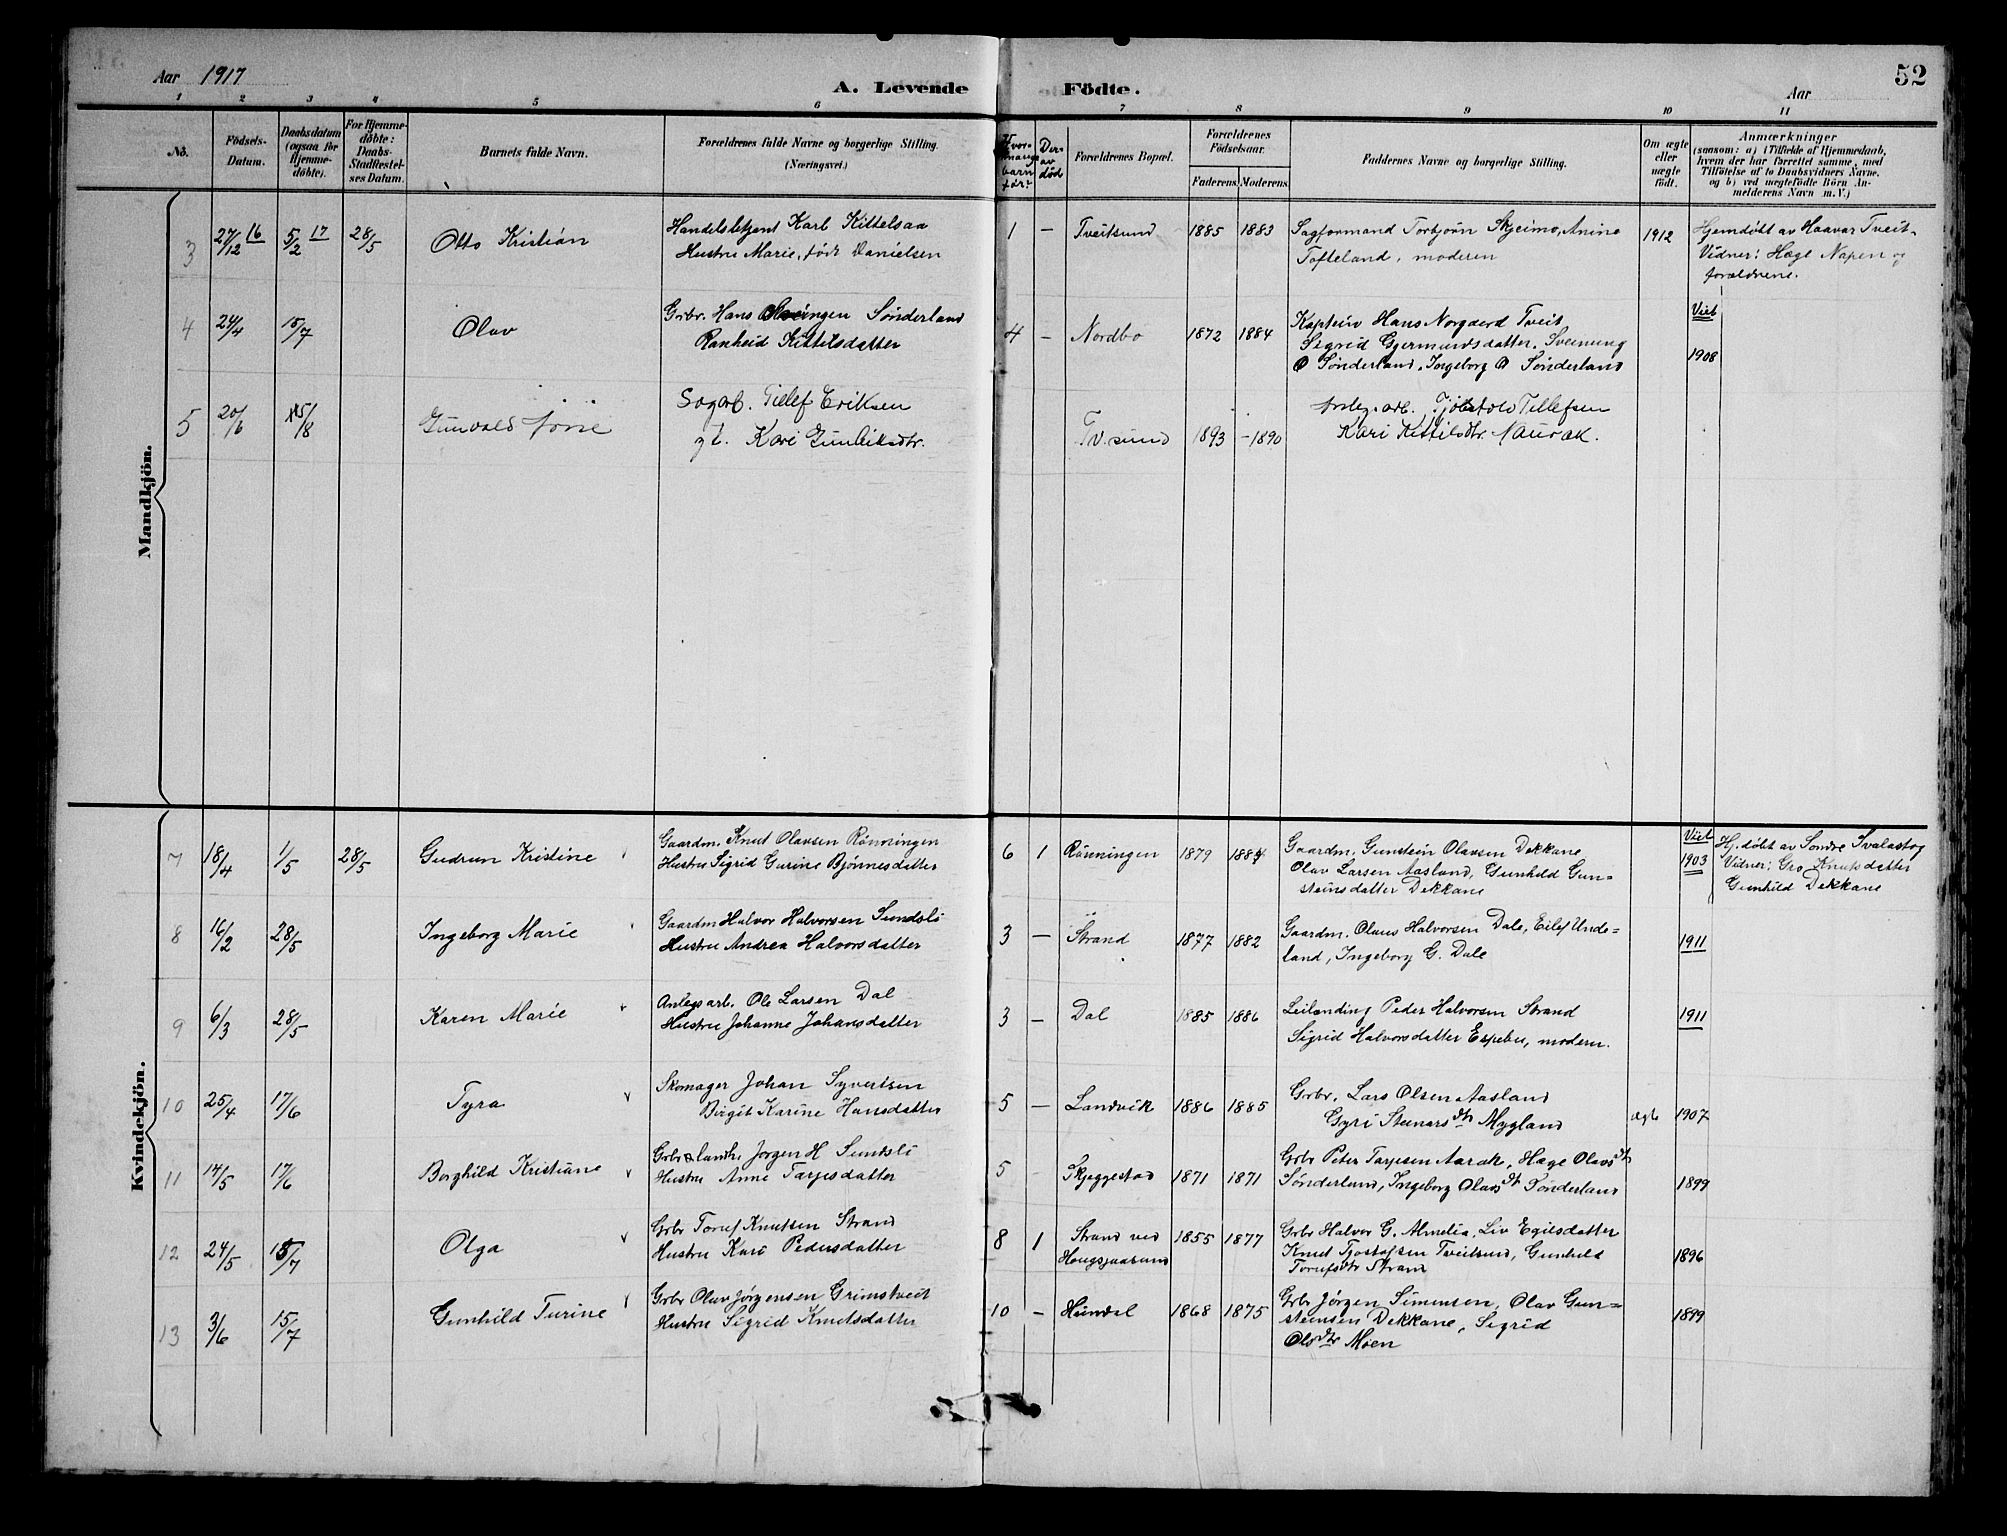 52
Aar 1917
A. Levende Födte.
Aar
1 2 3 4 5 6 7 8 9 10 11
No.
Födsels-Datum.
Daabsdatum (ogsaa for Hjemme-döbte).
For Hjemme-döbte: Daabs-Stadfæstel-ses Datum.
Barnets fulde Navn.
Forældrenes fulde Navne og borgerlige Stilling. (Næringsvei.)
Hvor-mange barn før?
Der-av død
Forældrenes Bopæl.
Forældrenes Födselsaar.
Faderens. Moderens.
Faddernes Navne og borgerlige Stilling.
Om ægte eller uægte födt.
Anmærkninger
(saasom: a) i Tilfælde af Hjemmedaab,
hvem der har forrettet samme, med
Tilföielse af to Daabsvidners Navne,
og b) ved uægtefödte Börn An-
melderens Navn m. V.)
Mandkjön.
3 27/12 16 5/2 17 28/5 Otto Kristian
Handelsbetjent Karl Kittelsaa
Hustru Marie, født Danielsen
1 — Tveitsund 1885 1883
Sagformand Torbjørn Skjeimo, Anine
Tofteland, moderen
1912
Hjemdøbt av Haavar Tveit.
Vidner: Hæge Napen og
forældrene.
4 24/4 15/7 Olav
Grbr. Hans Sønderland
Ranheid Kittelsdatter
4 — Nordbo 1872 1884
Kaptein Hans Norgaard Tveit
Sigrid Gjermundsdatter, Sveinung
O Sønderland, Ingeborg O Sønderland
Viet
1908
5 20/6 15/8 Gunvald
Sagarb. Tellef Eriksen
gt. Kari Gunleiksdtr.
Tv.sund 1893 -1890
Anlegsarb. Tellefsen
Kari Kittilsdtr. Naurak.
Kvindekjön.
7 18/4 1/5 28/5 Gudrun Kristine
Gaardm. Knut Olavsen Rønningen
Hustru Sigrid Gurine Bjønnesdatter
6 1 Rønningen 1879 1884
Gaardm. Gunstein Olavsen Dekkane
Olav Larsen Aasland, Gunhild Gun-
steinsdatter Dekkane
Viet
1903
Hj.døbt av Sondre Svalastog
Vidner: Gro Knutsdatter
Gunhild Dekkane
8 16/2 28/5 Ingeborg Marie
Gaardm Halvor Halvorsen Sundsli
Hustru Andrea Halvorsdatter
3 — Strand 1877 1882
Gaardm. Olaus Halvorsen Dale, Eilef Unde-
land, Ingeborg G. Dale
1911
9 6/3 28/5 Karen Marie
Anlegsarb. Ole Larsen Dal
Hustru Johanne Johansdatter
3 — Dal 1885 1886
Leilending Peder Halvorsen Strand
Sigrid Halvorsdatter Espebu, modern.
1911
10 25/4 17/6 Tyra
Skomager Johan Syvertsen
Birgit Karine Hansdatter
5 — Landvik 1886 1885
Grbr. Lars Olsen Aasland
Gyri Steinarsdtr Mygland
ægte 1907
11 14/5 17/6 Borghild Kristiane
Grbr & landh. Jørgen H Sundsli
Hustru Anne Tarjesdatter
5 - Skjeggestad 1871 1871
Grbr Peter Tarjesen Aarak, Hæge Olavsdtr
Sønderland, Ingeborg Olavsdtr Sønderland
1899
12 24/5 15/7 Olga
Grbr Toruf Knutsen Strand
Hustru Kari Pedersdatter
8 1 Strand ved
Haugsjaasund 1855 1877
Grbr Halvor G. Almelia, Liv Egilsdatter
Knut Tjostofsen Tveitsund, Gunhild
Torufsdtr Strand
1896
13 3/6 15/7 Gunhild Turine
Grbr Olav Jørgensen Grimstveit
Hustru Sigrid Knutsdatter
10 — Heimdal 1868 1875
Grbr Jørgen Simonsen, Olav Gun-
steinsen Dekkane, Sigrid
Olsdtr Moen
1899